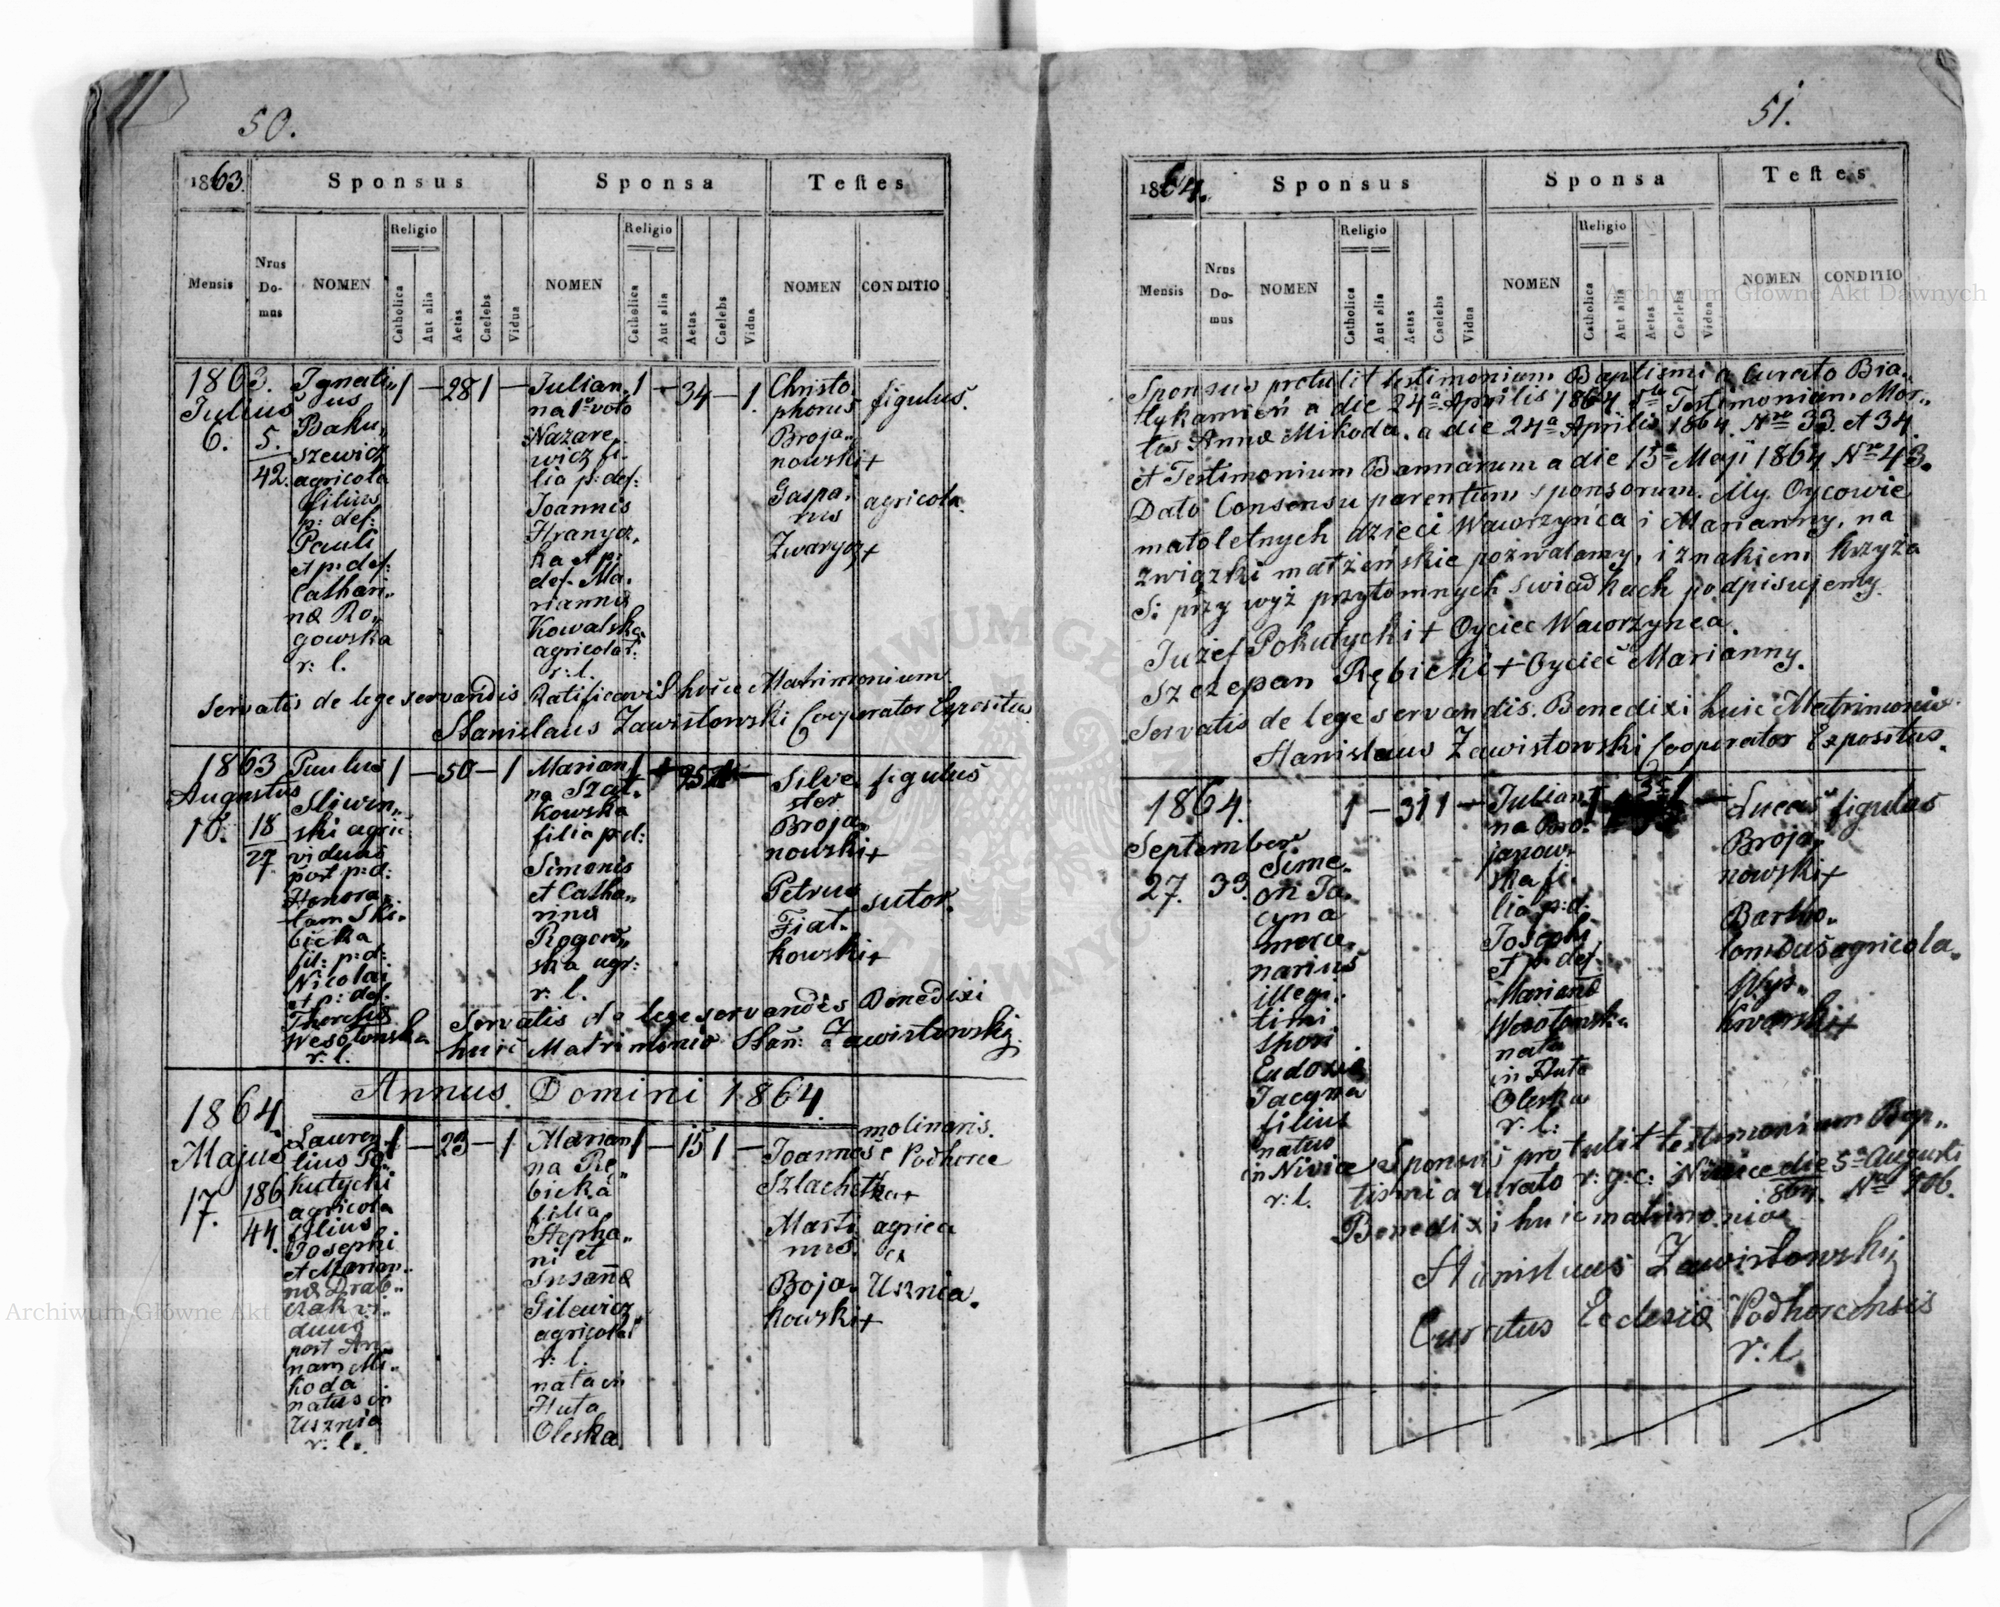 50.
1863.
Sponsus
Sponsa
Testes
Mensis
Nrus Domus
NOMEN
Religio
Catholica
Aut alia
Aetas
Caelebs
Vidua
NOMEN
Religio
Catholica
Aut alia
Aetas
Caelebs
Vidua
NOMEN
CONDITIO
1863.
Julius
6.
5.
42.
Ignati„
us
Baku„
szewicz
agricola
filius
p: def:
Pauli
et p: def:
Cathari„
næ Ro„
gowska
r: l.
1 — 28 1 —
Julian„
na 1º voto
Nazare„
wicz fi„
lia p: def:
Joannis
Hranycz„
ka et p:
def. Ma„
riannæ
Kowalska
agricolar:
r: l.
1 — 34 — 1.
Christo„
phorus
Broja„
nowski +
figulus.
Gaspa„
rus
Zwarycz +
agricola.
Servatis de lege servandis Ratificavi huic Matrimonium
Stanislaus Zawistowski Cooperator Expositus
1863
Augustus
16.
18
27.
Paulus
Sliwin„
ski agric:
viduus
post p: d:
Honora„
tam Ski„
bicka
fil: p: d:
Nicolai
et p: def.
Theresiæ
Wesołowska
r: l.
1 — 50 — 1
Marian„
na Szat„
kowska
filia p: d:
Simonis
et Catha„
rinæ
Rogow„
ska agr:
r: l.
Silve„
ster
Broja„
nowski +
figulus
Petrus
Fiat„
kowski +
sutor.
Servatis de lege servandis Benedixi
huic Matrimonio Stan: Zawistowski
Annus Domini 1864.
1864.
Majus
17.
186
44.
Lauren„
tius Po„
kutycki
agricola
filius
Josephi
et Marian„
næ Drab„
czak vi„
duus
post An„
nam Mi„
koda
natus in
Usznia
r: l.
1 — 23 — 1
Marian„
na Rę„
bicka
filia
Stepha„
ni et
Susannæ
Gilewicz
agricolar
r: l.
nata in
Huta
Oleska
1 — 15 1 —
Joannes
Szlachetka +
molinaris.
e Podhorce
Marti„
nus
Boja„
kowski +
agricola
ex
Usznia.
51.
1864.
Sponsus
Sponsa
Testes
Mensis
Nrus Domus
NOMEN
Religio
Catholica
Aut alia
Aetas
Caelebs
Vidua
NOMEN
Religio
Catholica
Aut alia
Aetas
Caelebs
Vidua
NOMEN
CONDITIO
Sponsus protulit testimonium Baptismi a Curato Bia„
łykamień a die 24ª Aprilis 1864 Testimonium Mor„
tis Annæ Mikoda. a die 24ª Aprilis 1864. Nro 33. et 34.
et Testimonium Bannarum a die 15ª Maji 1864 Nro 43.
Dato Consensu parentum sponsorum. My Oycowie
małoletnych dzieci Wawrzyńca i Marianny, na
związki małżeńskie pozwalamy, i znakiem krzyża
S: przy wyż przytomnych swiadkach podpisujemy.
Juzef Pokutycki + Oyciec Wawrzynca.
Szczepan Rębicki + Oyciec Marianny.
Servatis de lege servandis. Benedixi huic Matrimonio.
Stanislaus Zawistowski Cooperator Expositus.
1864.
September.
27.
33
Sime„
on Ja„
cyna
merce„
narius
illegi„
timi
thori
Eudoxiæ
Jacyna
filius
natus
in Nivice
r: l.
1 — 31 1 —
Julian„
na Bro„
janow„
ska fi„
lia p: d:
Josephi
et p: def.
Mariannæ
Wesołowska
nata
in Huta
Oleska
r: l:
Lucas
Broja„
nowski +
figulus
Bartho„
lomæus
Wys„
kwarski +
agricola.
Sponsus protulit testimonium Bap„
tismi a curato r: g: c: Nivice die 5ª Augusti
864. Nro 106.
Benedixi huic matrimonio
Stanislaus Zawistowski
Curatus Ecclesiæ Podhorcensis
r: l.
Archiwum Główne Akt Dawnych